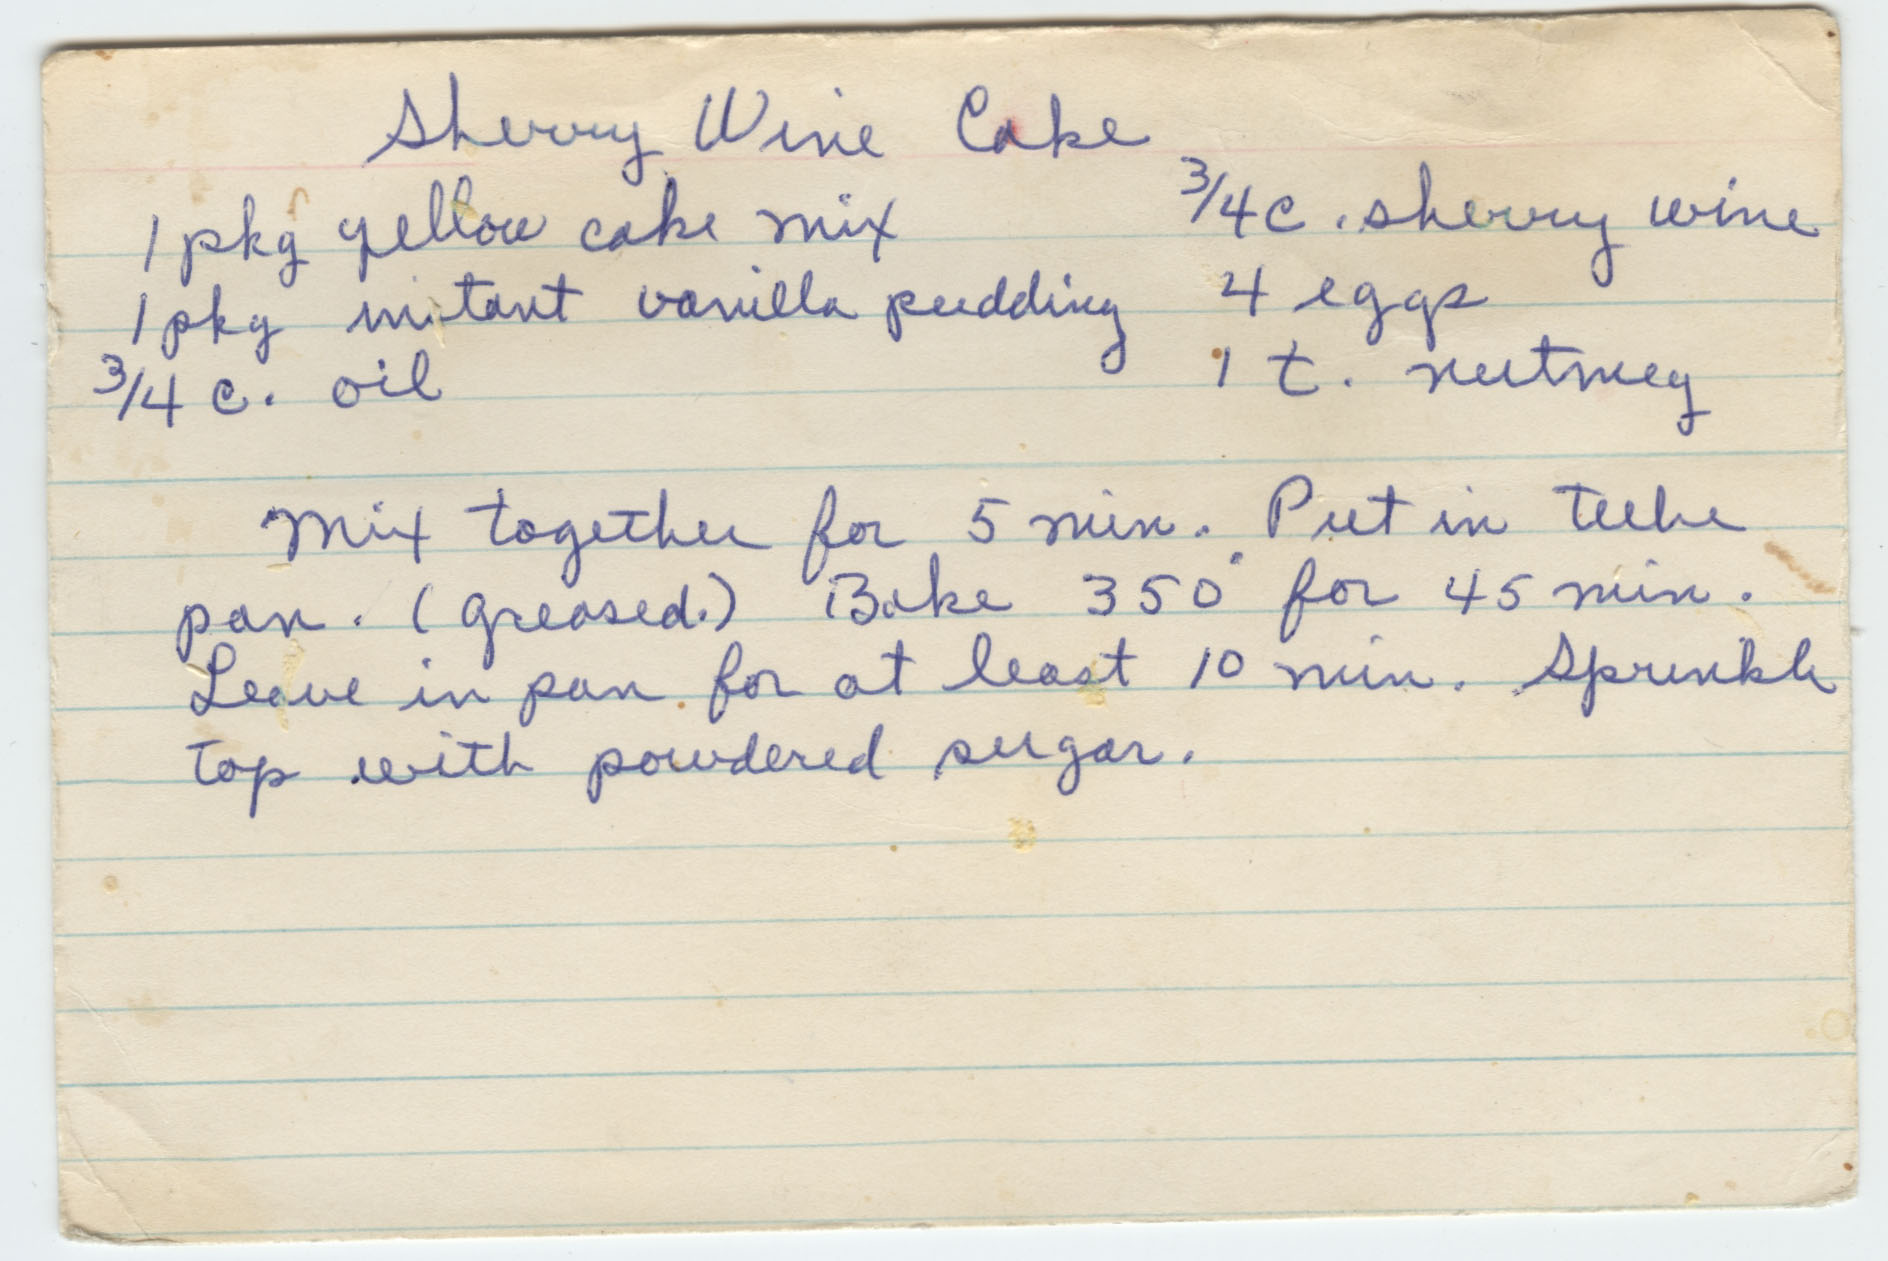 Sherry Wine Cake
1 pkg yellow cake mix 3/4 c. sherry wine
1 pkg instant vanilla pudding 4 eggs
3/4 c. oil 1 t. nutmeg
Mix together for 5 min. Put in tube
pan. (greased.) Bake 350° for 45 min.
Leave in pan for at least 10 min. Sprinkle
top with powdered sugar.